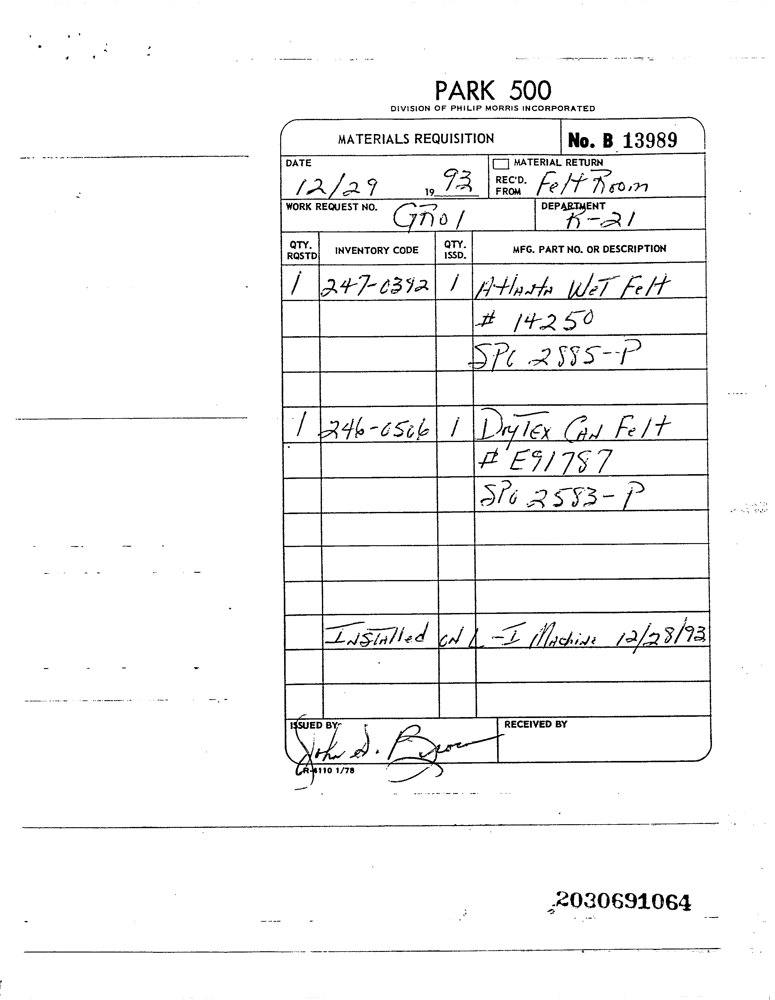 PARK 500
DIVISION OF PHILIP MORRIS INCORPORATED
MATERIALS REQUISITION No. B 13989
DATE 12/29 19 93 MATERIAL RETURN
REC'D. FROM Felt Room
WORK REQUEST NO. GR01 DEPARTMENT R-21
QTY. RQSTD INVENTORY CODE QTY. ISSD. MFG. PART NO. OR DESCRIPTION
1 247-0392 1 Atlanta Wet Felt
# 14250
SPC 2885-P
1 246-0506 1 DryTex Can Felt
# E91787
SPC 2583-P
Installed on L-I Machine 12/28/93
ISSUED BY John D. Brown RECEIVED BY
R-4110 1/78
2030691064